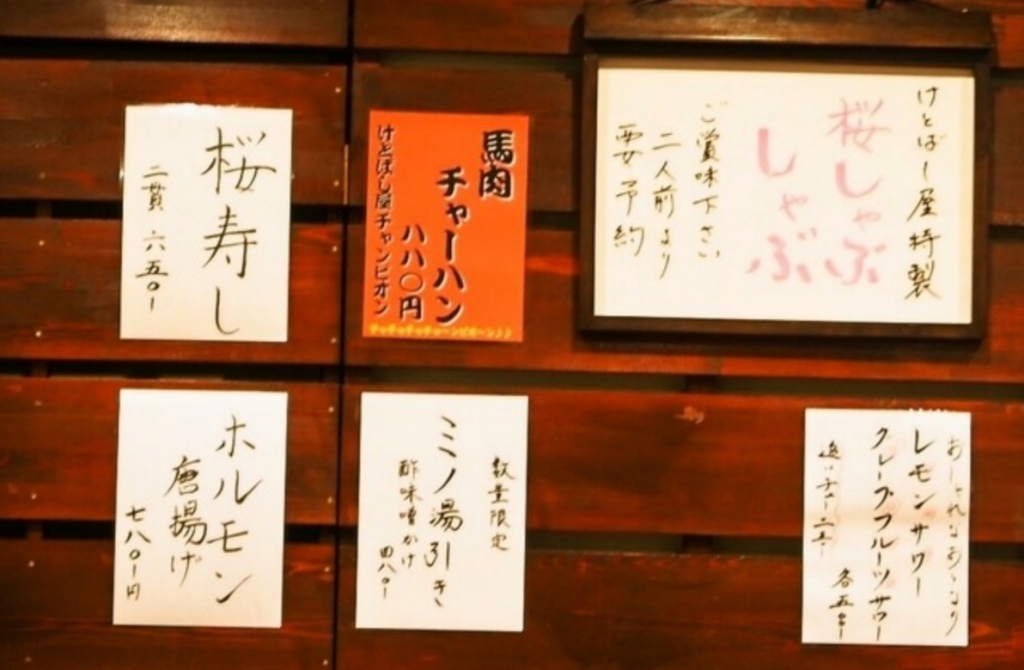 けとばし屋特製
桜しゃぶ
しゃぶ
ご賞味下さい
二人前より
要予約
馬肉
チャーハン
八八〇円
けとばし屋チャンピオン
チャチャチャチャ〜ンピオ〜ン♪♪
桜寿し
二貫 六五〇ー
レモンサワー
グレープフルーツサワー
数量限定
ミノ湯引き
酢味噌かけ
四八〇ー
ホルモン
唐揚げ
七八〇円